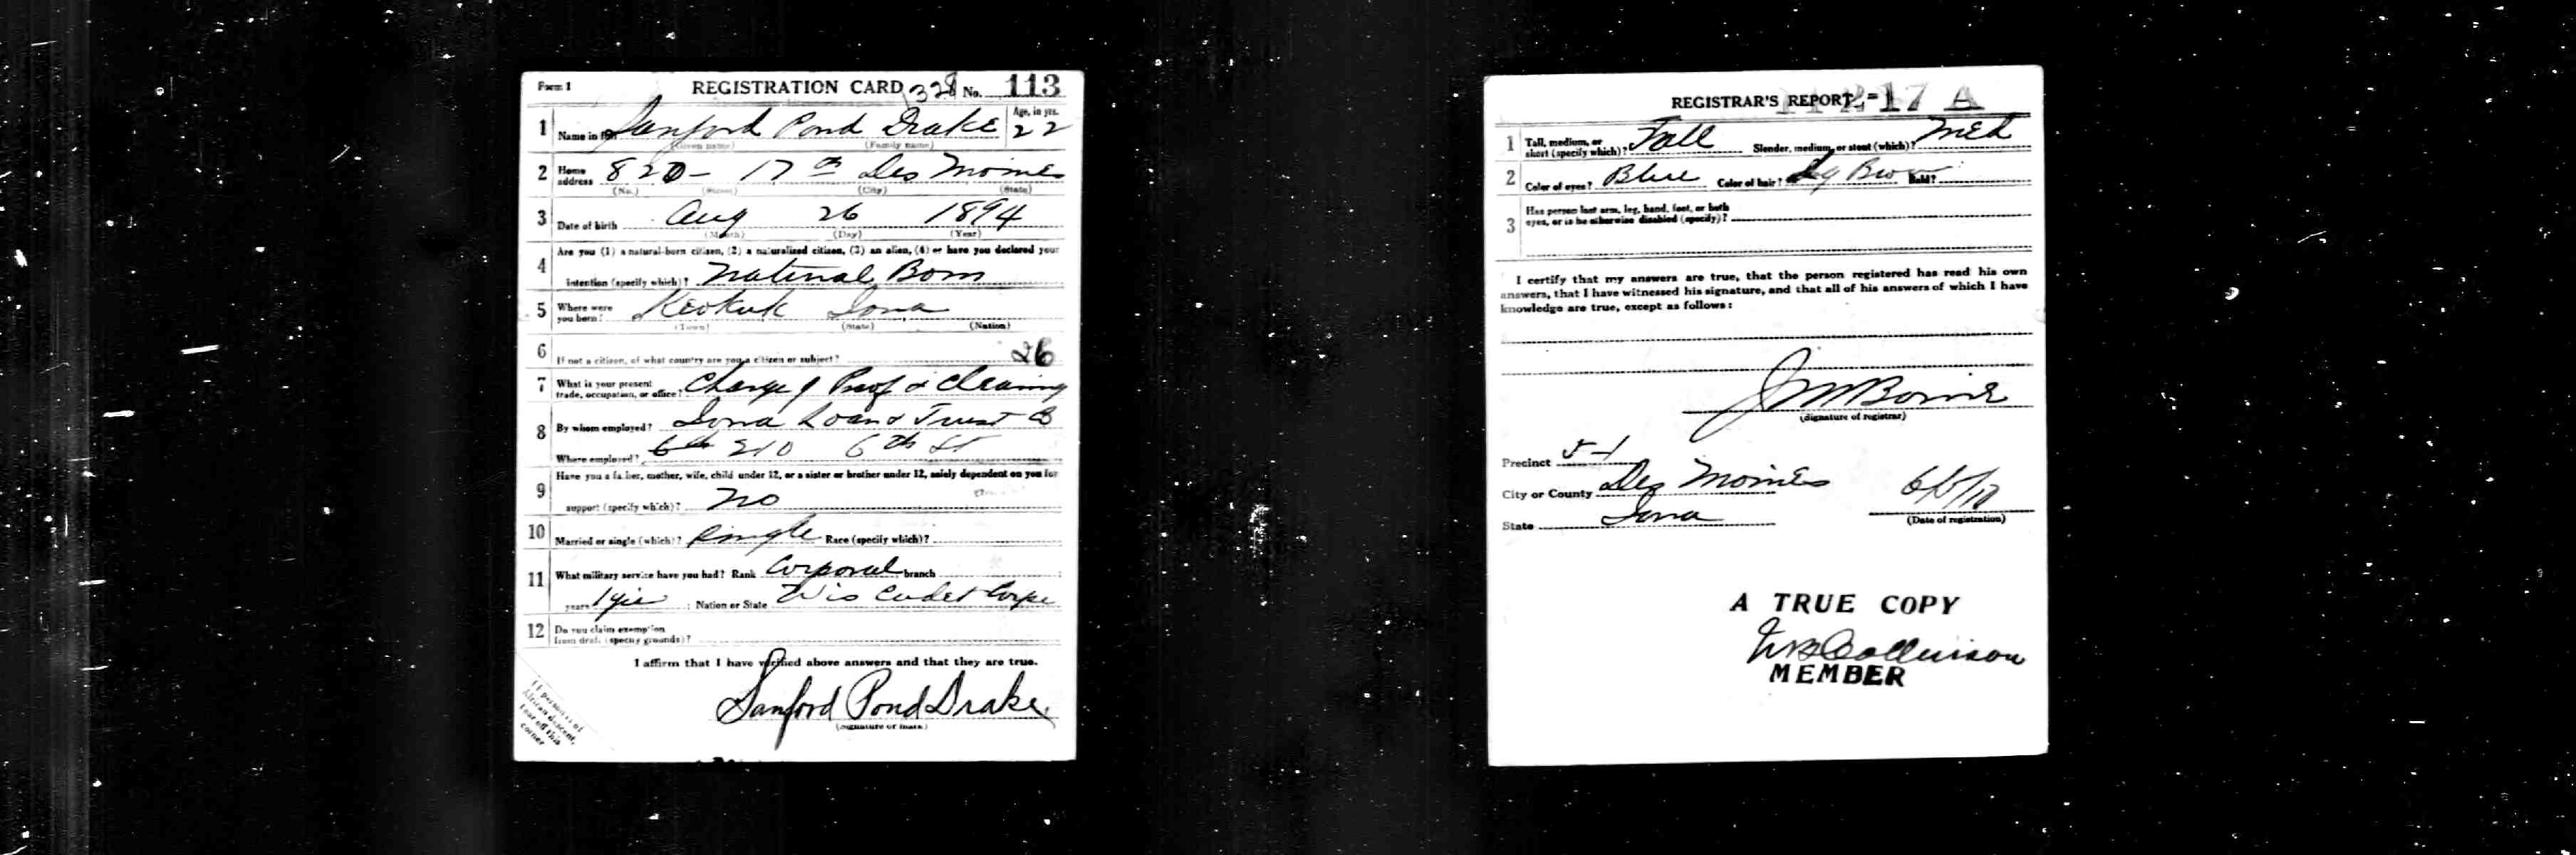 Form 1 REGISTRATION CARD 1328 No. 113
1 Name in full Sanford Pond Drake Age, in yrs. 22
(Given name) (Family name)
2 Home address 820 - 17th Des Moines
(No.) (Street) (City) (State)
3 Date of birth Aug 26 1894
(Month) (Day) (Year)
4 Are you (1) a natural-born citizen, (2) a naturalized citizen, (3) an alien, (4) or have you declared your
intention (specify which)? Natural Born
5 Where were you born? Keokuk Iowa
(Town) (State) (Nation)
6 If not a citizen, of what country are you a citizen or subject? 26
7 What is your present trade, occupation, or office? Charge of Proof & Clearing
8 By whom employed? Iowa Loan & Trust Co
Where employed? 210 6th St
9 Have you a father, mother, wife, child under 12, or a sister or brother under 12, solely dependent on you for
support (specify which)? no
10 Married or single (which)? Single Race (specify which)?
11 What military service have you had? Rank Corporal branch
years 1 yr ; Nation or State Wis Cadet Corps
12 Do you claim exemption from draft (specify grounds)?
I affirm that I have verified above answers and that they are true.
Sanford Pond Drake
(Signature or mark)
If person is of
African descent,
tear off this
corner
REGISTRAR'S REPORT 14-2-17 A
1 Tall, medium, or short (specify which)? Tall Slender, medium, or stout (which)? Med
2 Color of eyes? Blue Color of hair? Lg Brow Bald?
3 Has person lost arm, leg, hand, foot, or both
eyes, or is he otherwise disabled (specify)?
I certify that my answers are true, that the person registered has read his own
answers, that I have witnessed his signature, and that all of his answers of which I have
knowledge are true, except as follows:
(Signature of registrar)
Precinct 5-1
City or County Des Moines
6/5/17
State Iowa
(Date of registration)
A TRUE COPY
MEMBER